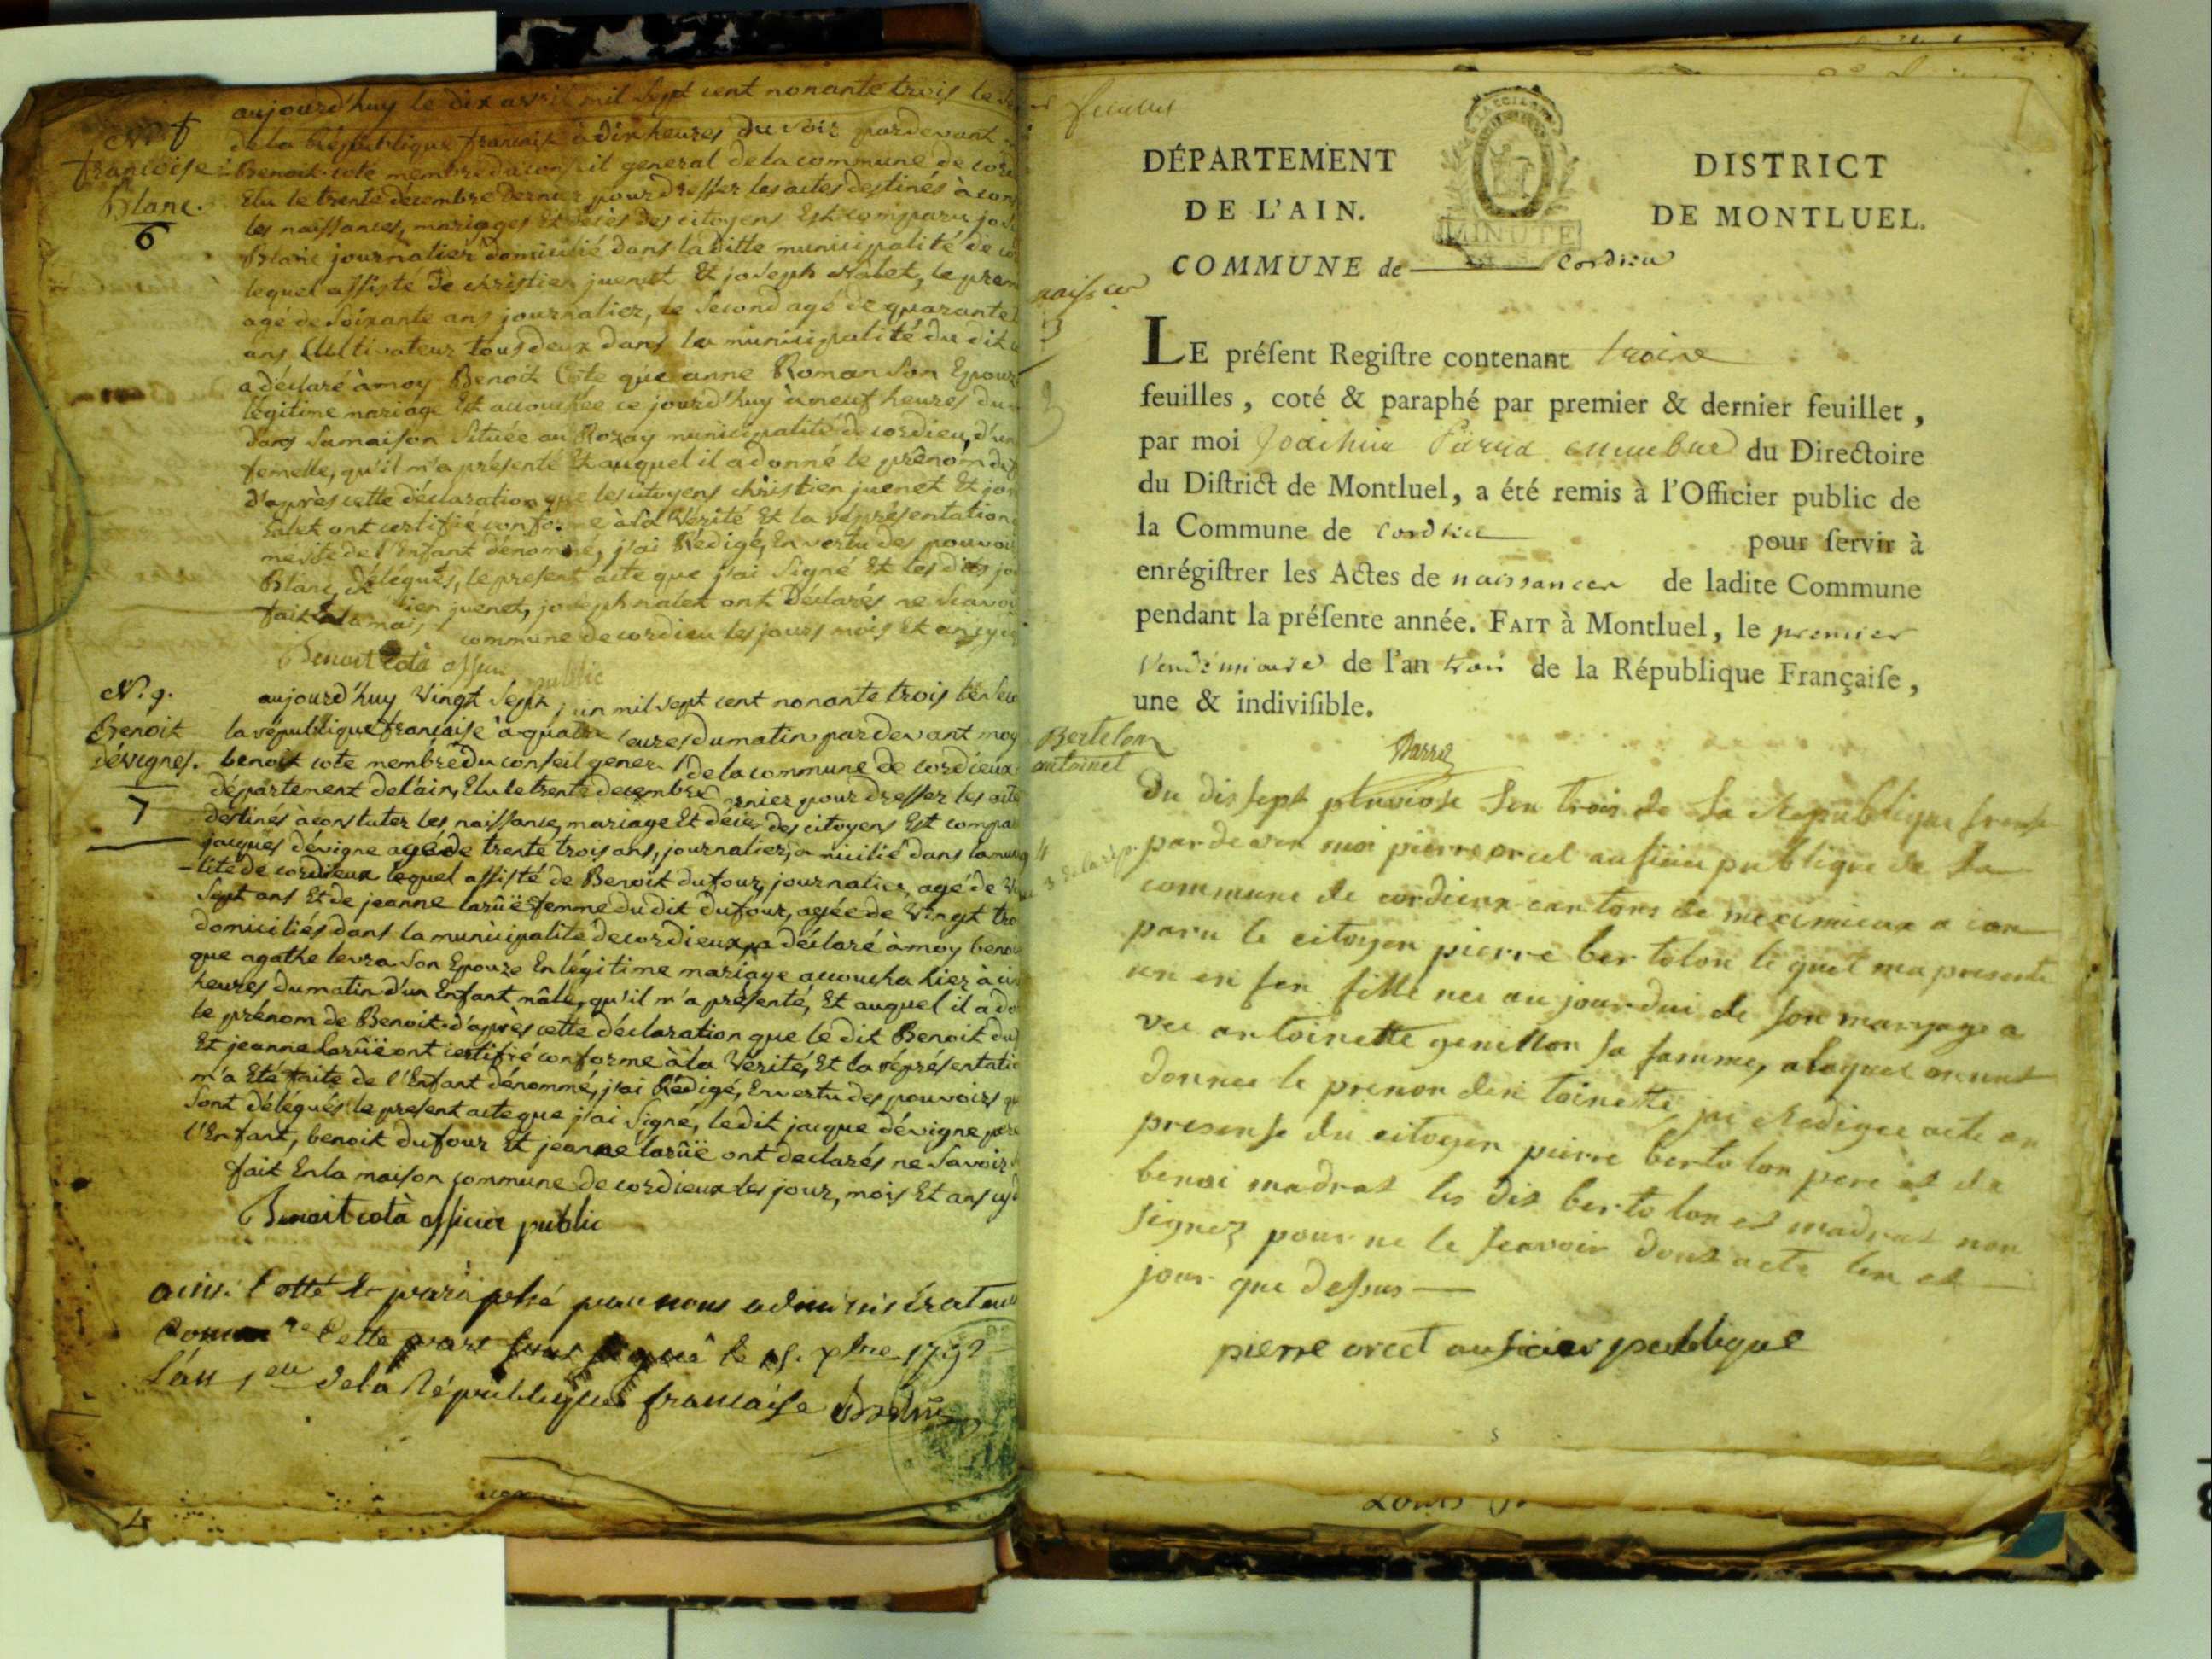 aujourd'huy le dix avril mil Sept cent nonante trois le
de la République francaise à dix heures du soir pardevant
N.
francoise
Blanc.
6
Benoit cote membre du conseil general de la commune de
Elu le trente décembre dernier pour dresser les actes destinés à
les naissances, mariages Et décès des citoyens Est comparu
Blanc journalier domicilié dans la ditte municipalité de
lequel assisté de christien juenet Et joseph Nalet, le
agé de Soixante ans journalier, le Second agé de quarante
ans Cultivateur tous deux dans la municipalité du dit
a déclaré à moy Benoit Cote que anne Roman Son
légitime mariage Est accouchée ce jourd'huy à neuf heures du
dans Sa maison Située au Rozay municipalité de cordieu,
femelle, qu'il m'a présenté Et auquel il a donné le prénom
d'après cette déclaration que les citoyens christien juenet Et
ont certifié conforme à la Vérité Et la représentation
de l'Enfant dénommé, j'ai Rédigé, En vertu des
délégués, le present acte que j'ai Signé Et les dits
Blanc, juenet, joseph nalet ont Déclarés ne
fait commune de cordieu les jours mois Et
Benoit cotà public
N. 9.
Benoit
dévignes.
7
aujourd'huy Vingt Sept mil sept cent nonante trois
la république francaise à quatre heures du matin pardevant moy
benoit cote membre du conseil de la commune de cordieux
département de l'ain, Elu le trente decembre pour dresser les
destinés à constater les naissance, mariage Et décès des citoyens Est
jacques dévigne agé de trente trois ans, journalier, dans la
-lité de cordieux lequel assisté de Benoit dufour, journalier, agé de
Sept ans Et de jeanne larüe femme du dit dufour, agée de Vingt
domiciliés dans la municipalité de cordieux, a déclaré à moy
que agathe levra Son Epouze En légitime mariage accoucha hier à
heures du matin d'un Enfant mâle, qu'il m'a présenté, Et auquel il a
le prénom de Benoit. d'après cette déclaration que le dit Benoit
Et jeanne Larüe ont certifié conforme à la Vérité, Et la
m'a Eté faite de l'Enfant dénommé, j'ai Rédigé, En vertu des pouvoirs
Sont délégués le present acte que j'ai Signé, le dit jacque dévigne
l'Enfant, benoit dufour Et jeanne larüe ont declarés ne Savoir
fait En la maison commune de cordieux les jour, mois Et
Benoit cotà officier public
paraphé par nous
Cette part le 15. 1792
L'an 1er de la République francaise
feuillet
DÉPARTEMENT
DE L'AIN.
DISTRICT
DE MONTLUEL.
MINUTE
COMMUNE de cordieu
LE préſent Regiſtre contenant troise
feuilles, coté & paraphé par premier & dernier feuillet,
par moi du Directoire
du Diſtrict de Montluel, a été remis à l'Officier public de
la Commune de cordieu pour ſervir à
enrégiſtrer les Actes de naissances de ladite Commune
pendant la préſente année. FAIT à Montluel, le premier
Vendémiaire de l'an trois de la République Françaiſe,
une & indiviſible.
Bertelon
antoinet
Du dis sept pluviose lan trois de la Republique
par de ven moi pierre orcet aufisier publique de la
commune de cordieux cantons de meximieux a com
paru le citoyen pierre bertolon le quel ma presente
un en fen fille nee au jourdui de son maryage a
vec antoinette genillon sa famme, a laquel
donnee le prenon toinette, jai Redigee acte an
presense du citoyen pierre bertolon pere et de
benoi madrat les dis bertolon et madrat non
signez pour ne le scavoir dont acte lan et
jour que dessus
pierre orcet aufisier publique